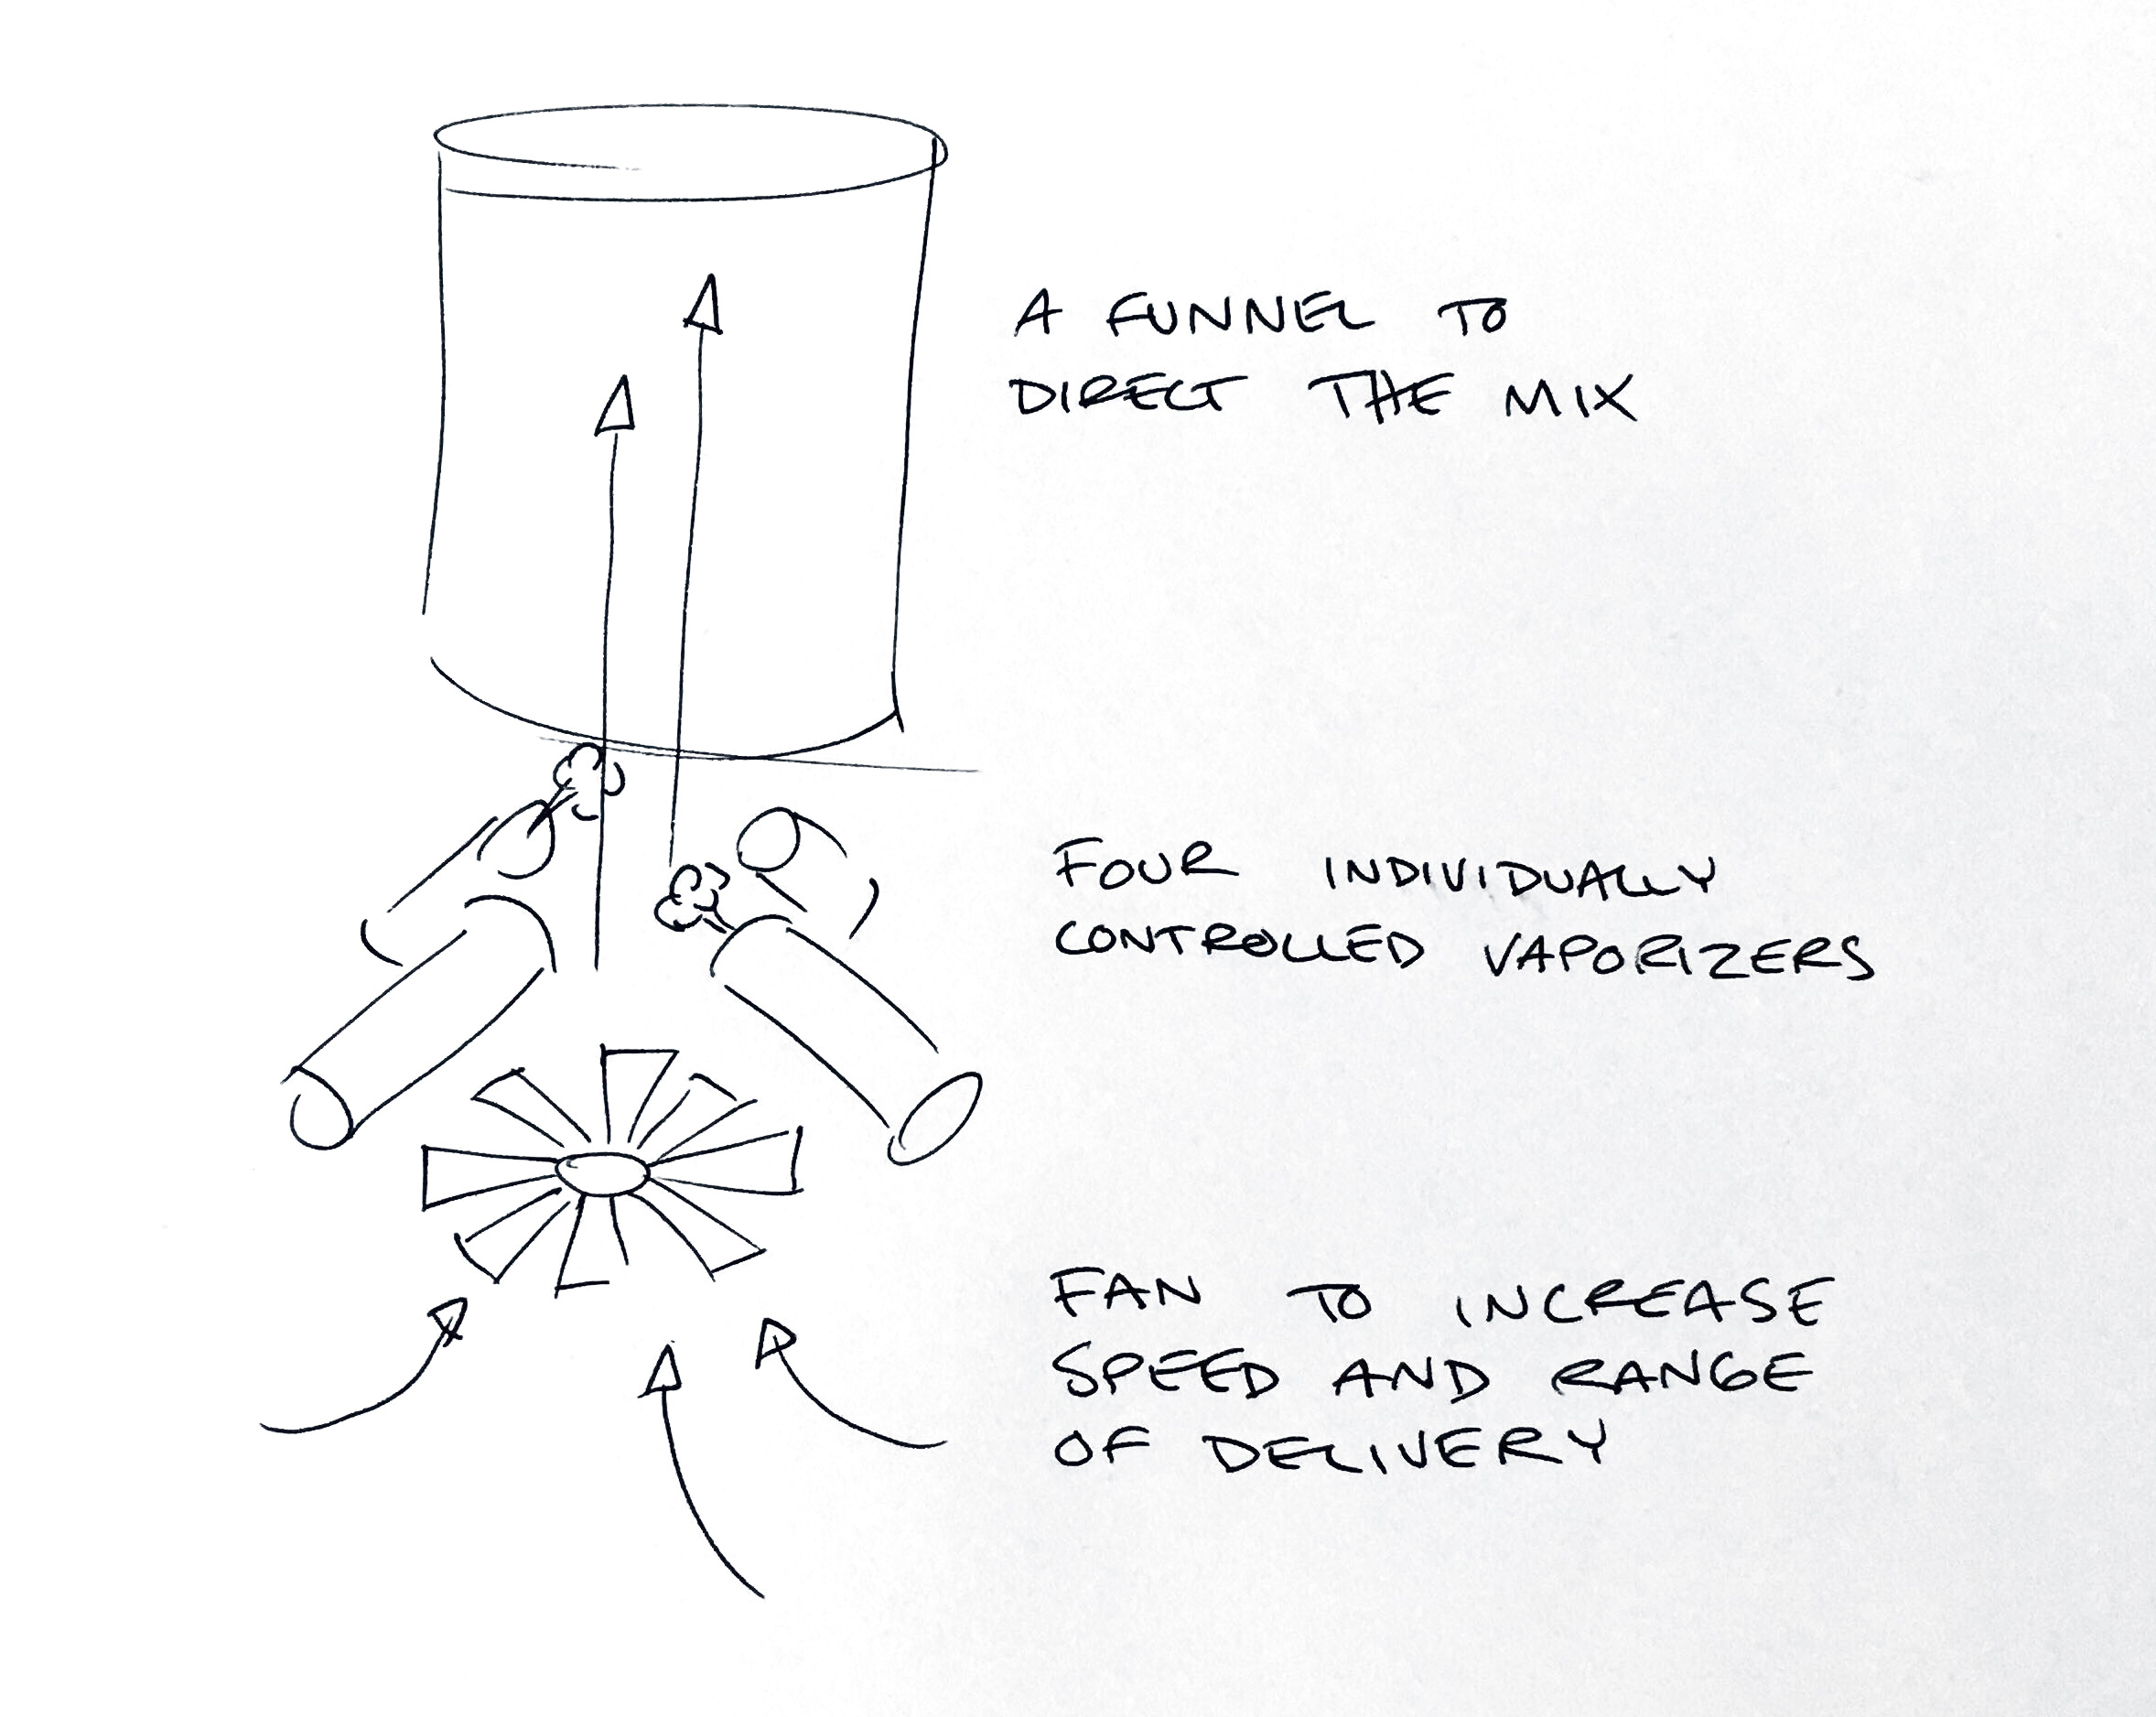 A FUNNEL TO
DIRECT THE MIX
FOUR INDIVIDUALLY
CONTROLLED VAPORIZERS
FAN TO INCREASE
SPEED AND RANGE
OF DELIVERY